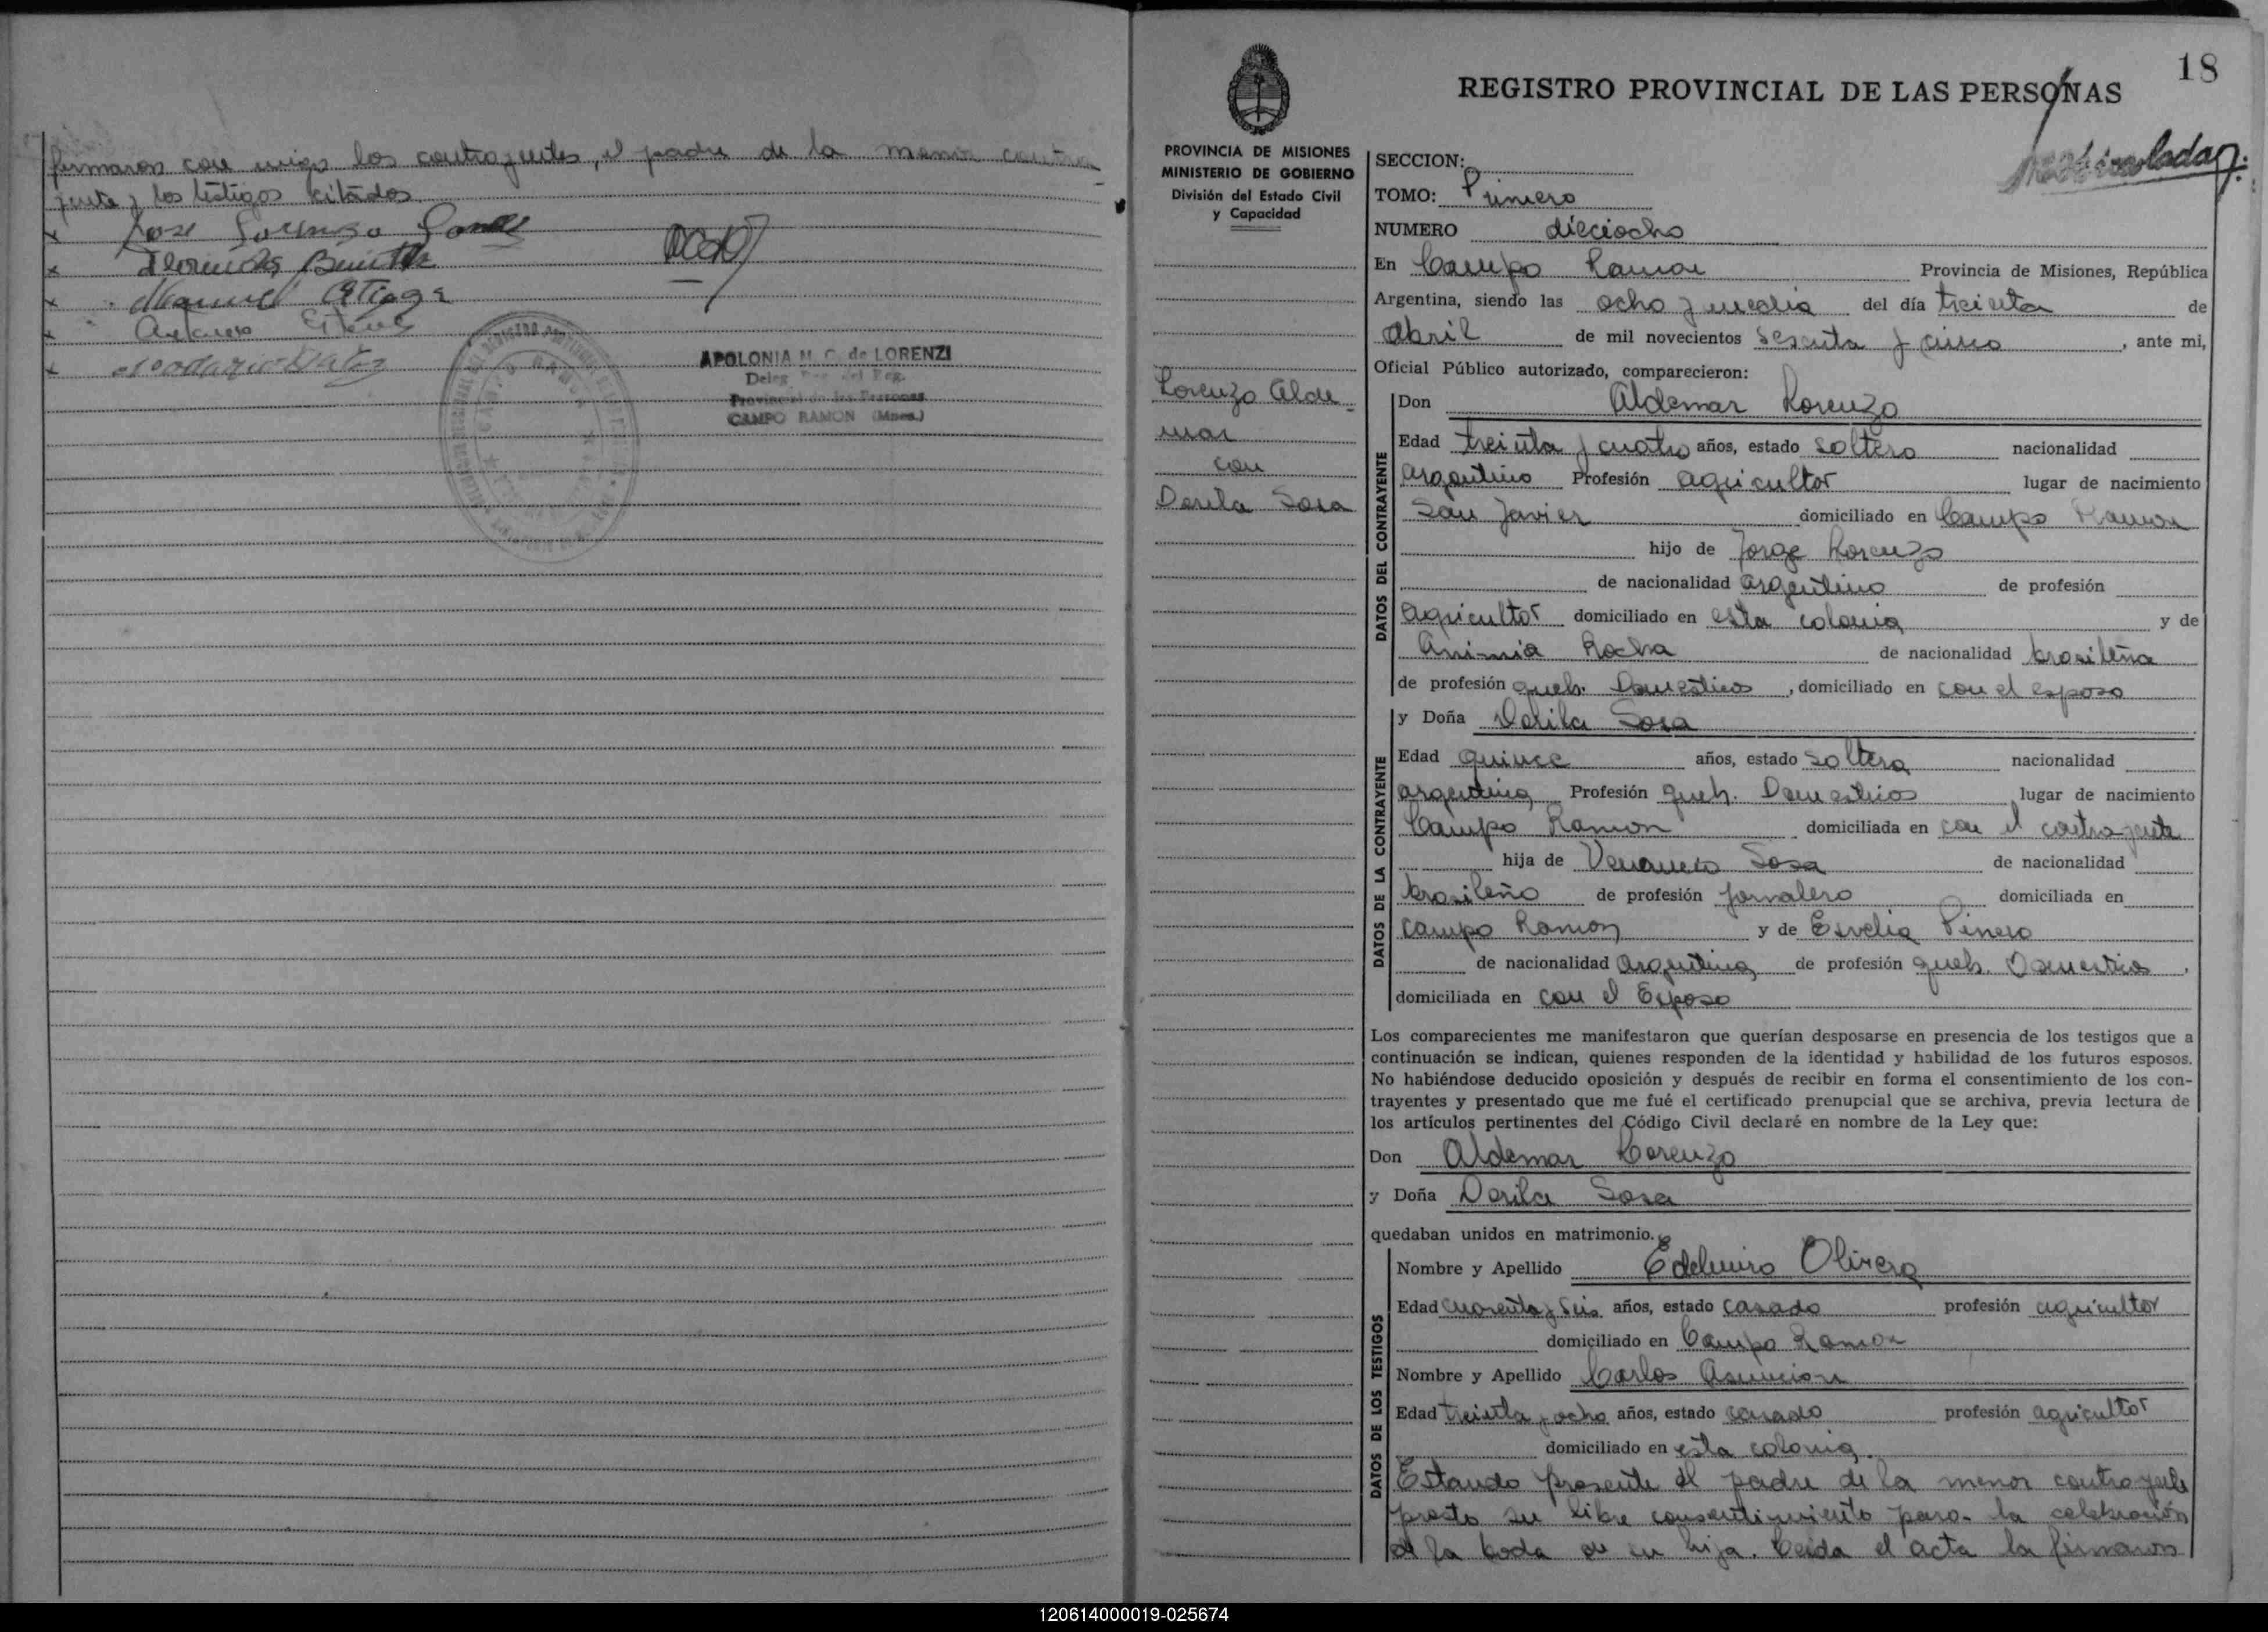 firmaron con migo los contrayentes, el padre de la menor contra
yente y los testigos citados
x Jose
x Benitez
x Manuel
x Arturo
x
APOLONIA M. C. de LORENZI
Deleg. del Reg.
Provincial de las Personas
CAMPO RAMON (Mnes.)
18
REGISTRO PROVINCIAL DE LAS PERSONAS
PROVINCIA DE MISIONES
MINISTERIO DE GOBIERNO
División del Estado Civil
y Capacidad
Lorenzo Alde-
mar
con
Derila Sosa
SECCION:
TOMO: Primero
NUMERO dieciocho
En Campo Ramon Provincia de Misiones, República
Argentina, siendo las ocho y media del día treinta de
Abril de mil novecientos sesenta y cinco, ante mi,
Oficial Público autorizado, comparecieron:
DATOS DEL CONTRAYENTE
Don Aldemar Lorenzo
Edad treinta y cuatro años, estado soltero nacionalidad
argentino Profesión agricultor lugar de nacimiento
San Javier domiciliado en Campo Ramon
hijo de Jorge Lorenzo
de nacionalidad argentino de profesión
agricultor domiciliado en esta colonia y de
Animia Rocha de nacionalidad brasileña
de profesión queh. Domesticos, domiciliado en con el esposo
DATOS DE LA CONTRAYENTE
y Doña Derila Sosa
Edad quince años, estado soltera nacionalidad
argentina Profesión queh. Domesticos lugar de nacimiento
Campo Ramon domiciliada en con el contrayente
hija de Venancio Sosa de nacionalidad
brasileño de profesión jornalero domiciliada en
campo Ramon y de Esvelia Pinero
de nacionalidad Argentina de profesión queh. Domesticos,
domiciliada en con el Esposo
Los comparecientes me manifestaron que querían desposarse en presencia de los testigos que a
continuación se indican, quienes responden de la identidad y habilidad de los futuros esposos.
No habiéndose deducido oposición y después de recibir en forma el consentimiento de los con-
trayentes y presentado que me fué el certificado prenupcial que se archiva, previa lectura de
los artículos pertinentes del Código Civil declaré en nombre de la Ley que:
Don Aldemar Lorenzo
y Doña Derila Sosa
quedaban unidos en matrimonio.
DATOS DE LOS TESTIGOS
Nombre y Apellido Edelmiro Olivera
Edad cuarenta y seis años, estado casado profesión agricultor
domiciliado en Campo Ramon
Nombre y Apellido Carlos Asuncion
Edad treinta y ocho años, estado casado profesión agricultor
domiciliado en esta colonia.
Estando presente el padre de la menor contrayente
presta su libre consentimiento para la celebración
de la boda de su hija. Leida el acta la firmaron
120614000019-025674